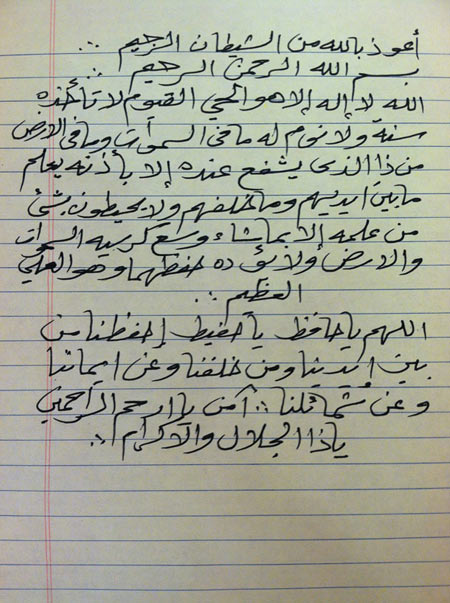 أعوذ بالله من الشيطان الرجيم ...
بسم الله الرحمن الرحيم ...
الله لا إله إلا هو الحي القيوم لا تأخذه
سنة ولا نوم له ما في السموات وما في الارض
من ذا الذى يشفع عنده إلا بأذنه يعلم
ما بين ايديهم وما خلفهم ولا يحيطون بشئ
من علمه إلا بما شاء وسع كرسيه السموات
والارض ولا يؤده حفظهما وهو العلي
العظيم ...
اللهم يا حافظ يا حفيظ إحفظنا من
بين ايدينا ومن خلفنا وعن ايماننا
وعن شمائلنا ... آمن يا ارحم الراحمين
يا ذا الجلال والاكرام ...